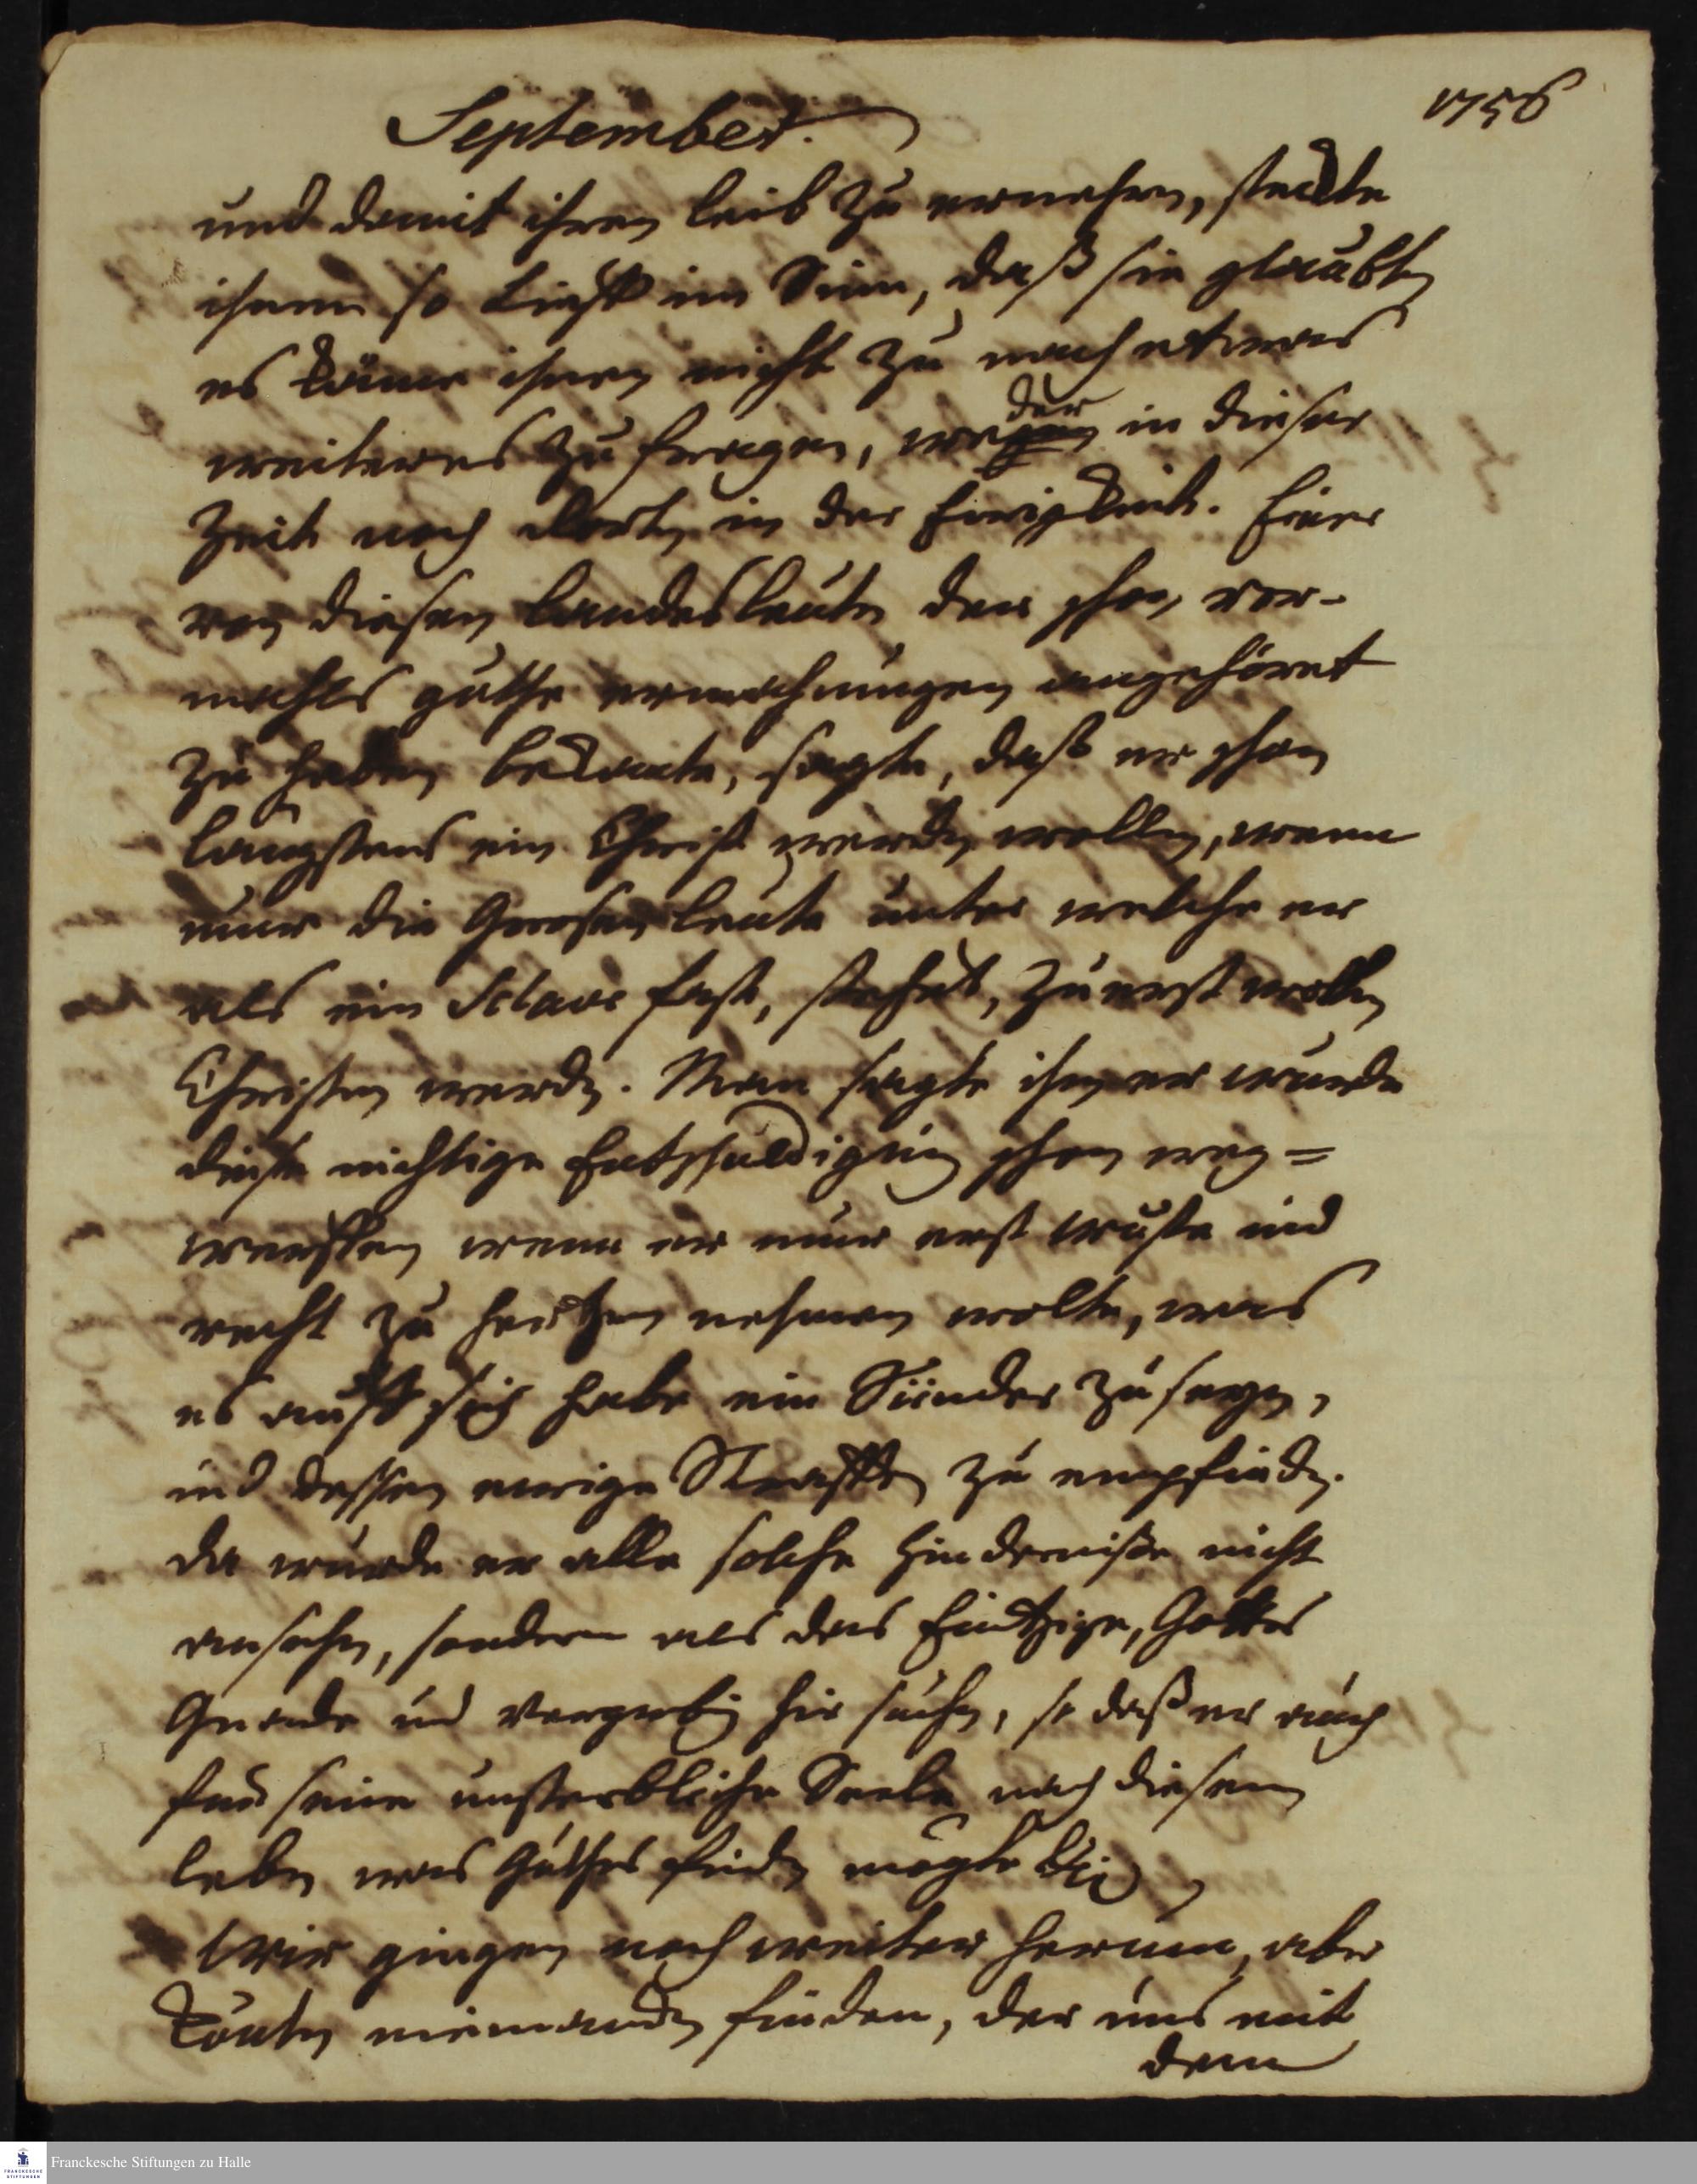 September.
1756
und damit ihren leib zu ernehren, steckte
ihnen so tieff im Sinn, daß sie glaubten
es käme ihnen nicht zu nach etwas
weiteres zu fragen, weder in dieser
Zeit noch dorten in der Ewigkeit. Einer
von diesen Landesleuten der schon vor-
mahls guthe ermahnungen angehöret
zu haben bekante, sagte, daß er schon
längstens ein Christ werden wollen, wenn
nur die Grosen leute unter welche er
als ein Sclave fast, stehet, zu erst wollen
Christen werden. Man sagte ihm er wurde
diese nichtige Entschuldigung schon weg=
werffen wenn er nur erst wuste und
recht zu hertzen nehmen wolte, was
es auff sich habe ein Sünder zu seyn,
und dessen ewige Straffen zu empfinden.
da wurde er alle solche Hinderniße nicht
ansehen, sondern als das Eintzige, Gottes
Gnade und Vergebung hir suchen, so daß er auch
für seine unsterbliche Seele nach diesem
leben was Guthes finden mögte
Wir gingen noch weiter herum, aber
konten niemanden finden, der uns mit
dem
Franckesche Stiftungen zu Halle
FRANCKESCHE
STIFTUNGEN